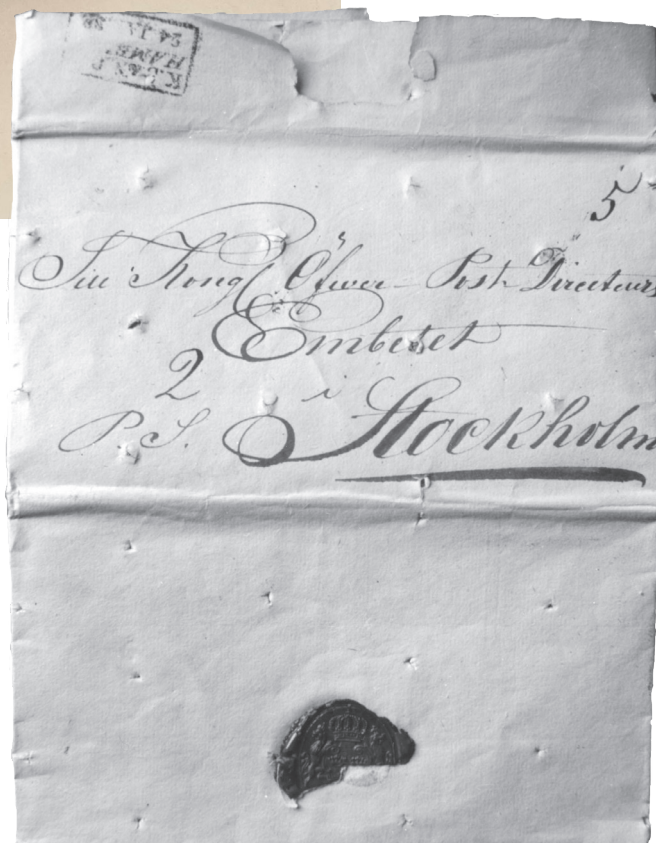 HAMB
24 JA
5
Till Kongl Öfwer-Post-Directeurs
Embetet
2 i
P. S. Stockholm